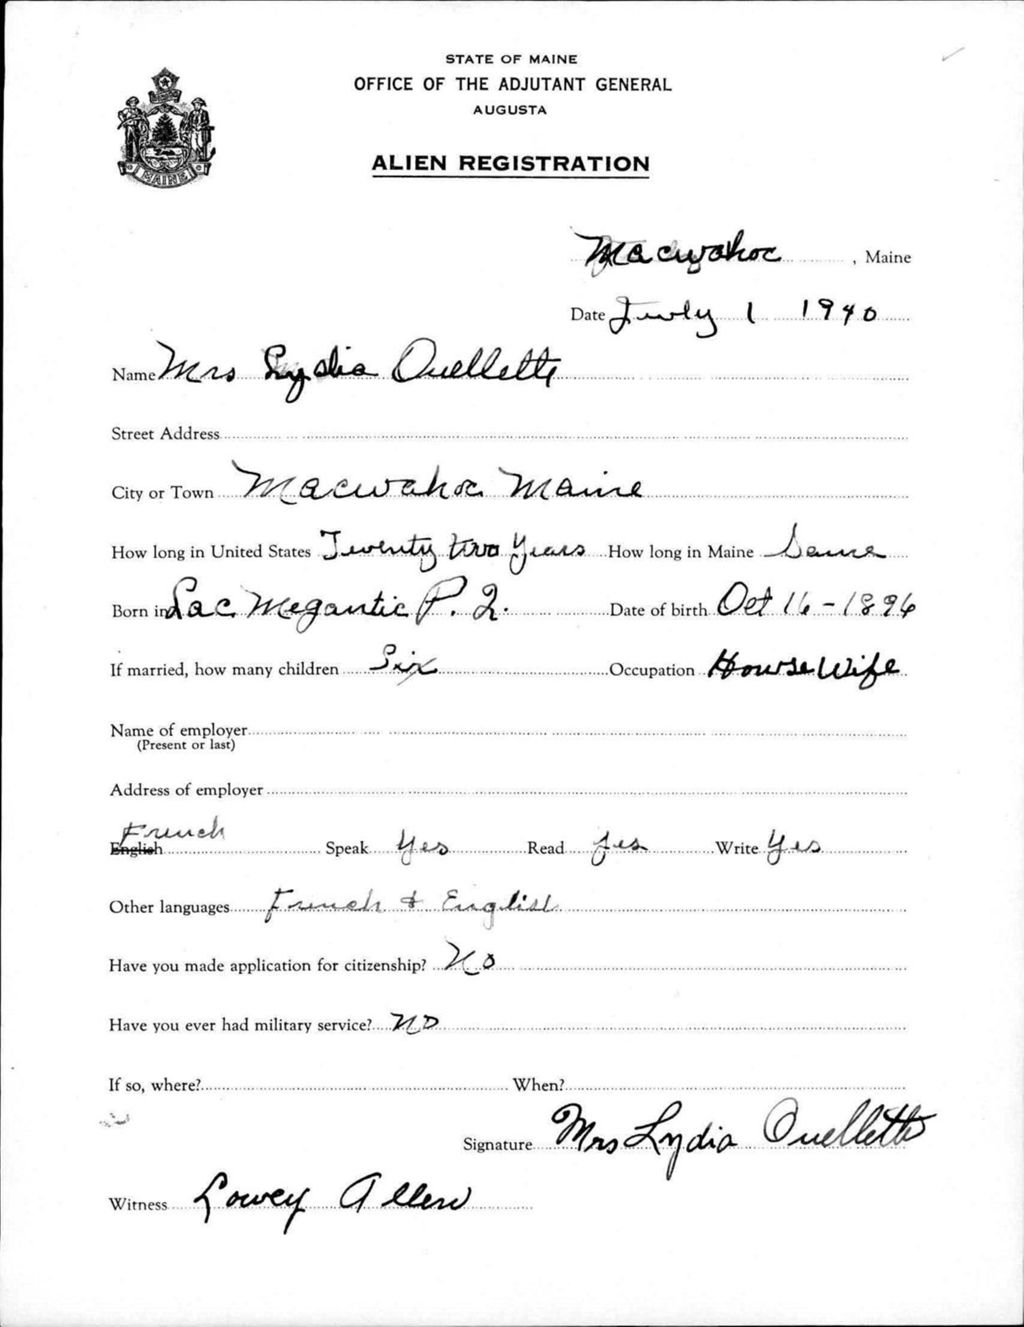 STATE OF MAINE
OFFICE OF THE ADJUTANT GENERAL
AUGUSTA
ALIEN REGISTRATION
MAINE
Macwahoc, Maine
Date July 1 1940
Name Mrs Lydia Ouellette
Street Address
City or Town Macwahoc Maine
How long in United States Twenty two Years How long in Maine Same
Born in Lac Megantic P. Q. Date of birth Oct 16 - 1896
If married, how many children Six Occupation House Wife
Name of employer
(Present or last)
Address of employer
French
English Speak Yes Read yes Write Yes
Other languages French & English
Have you made application for citizenship? No
Have you ever had military service? No
If so, where? When?
Signature Mrs Lydia Ouellette
Witness Lowey Allen